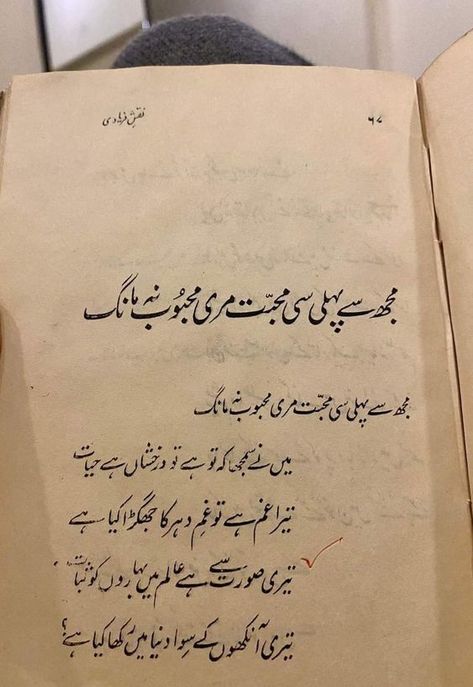 نقشِ فریادی
۶۷
مجھ سے پہلی سی محبّت مری محبُوب نہ مانگ
مجھ سے پہلی سی محبّت مری محبوب نہ مانگ
میں نے سمجھا کہ تو ہے تو درخشاں ہے حیات
تیرا غم ہے تو غمِ دہر کا جھگڑا کیا ہے
تیری صورت سے ہے عالم میں بہاروں کو ثبات
تیری آنکھوں کے سوا دنیا میں رکھا کیا ہے؟